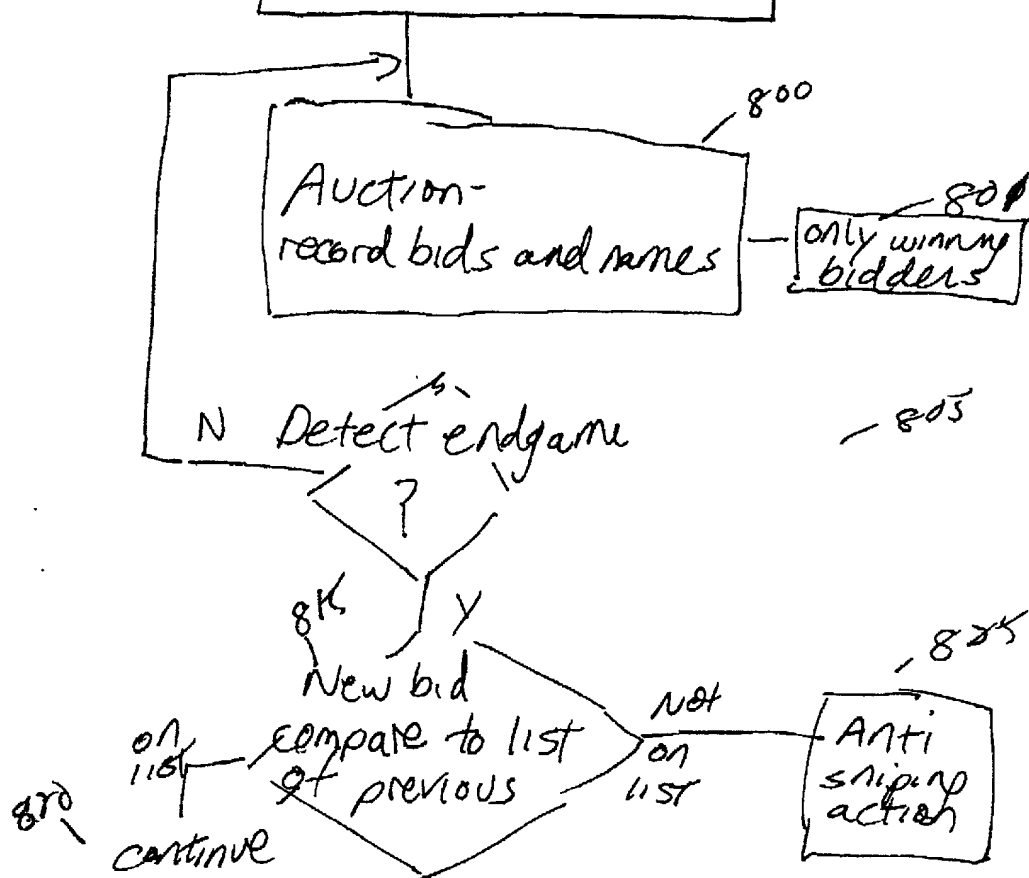 800
Auction-
record bids and names
801
only winning
bidders
N Detect endgame
?
805
815
Y
New bid
compare to list
of previous
on
list
Not
on
list
825
Anti
sniping
action
820
continue